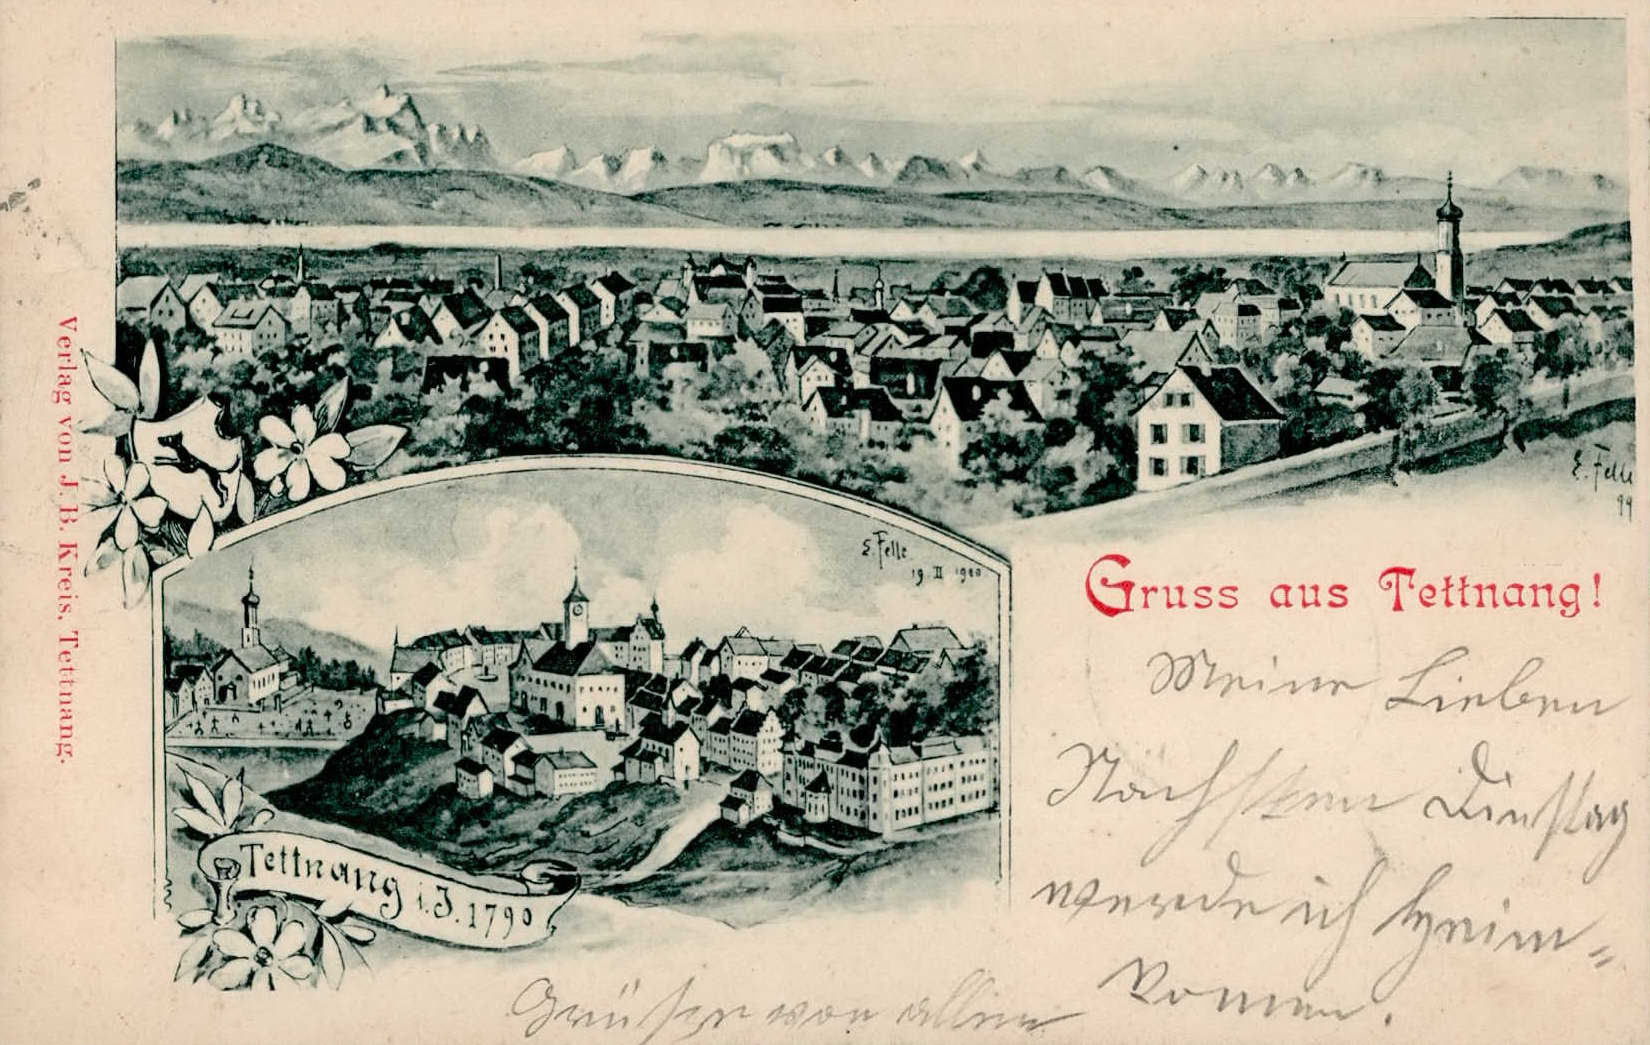 E. Felle
99
Verlag von J. B. Kreis, Tettnang.
E. Felle
19. II 1900
Gruss aus Tettnang!
Meine Lieben
Nächsten Dinstag
werde ich heim=
komen.
Tettnang i. J. 1790
Grüße von allen